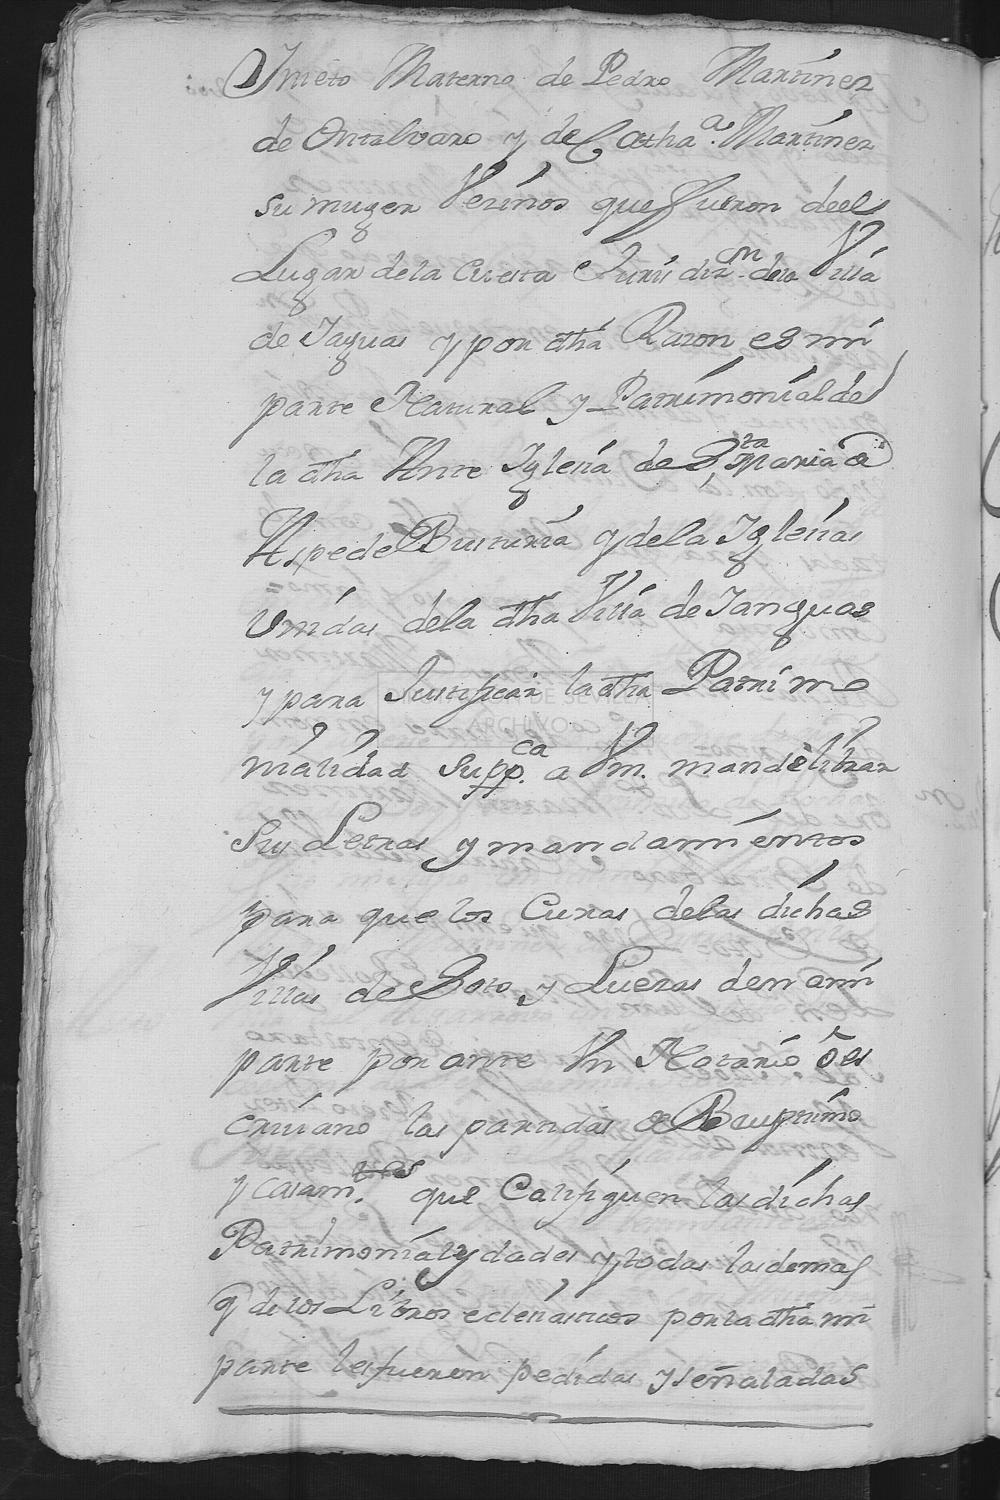 Y nieto Materno de Pedro Martinez
de Ontalvaro y de Catha.ª Martinez
su muger Vezinos que fueron deel
Lugar de la Cuesta Jurisdiz.n dela Villa
de Yaguas y por dha Razon es mi
parte Natural y Patrimonial de
la dha Ante Iglesia de S.ta Maria de
Aspe de Busturia y dela Iglesias
Unidas dela dha Villa de Tanguas
y para Justificar la dha Patrimo
nialidad supp.ca a Vm. mande librar
sus Letras y mandamientos
para que los Curas delas dichas
Villas de Soto y Luezas den a mi
parte por ante Un Notario ó es
crivano las partidas de Bauptismo
y casam.tos que Califiquen las dichas
Patrimonialydades y todas las demas
q de los Libros eclesiasticos por la dha mi
parte les fueron pedidas y señaladas
FUNDACIÓN DE SEVILLA
ARCHIVO